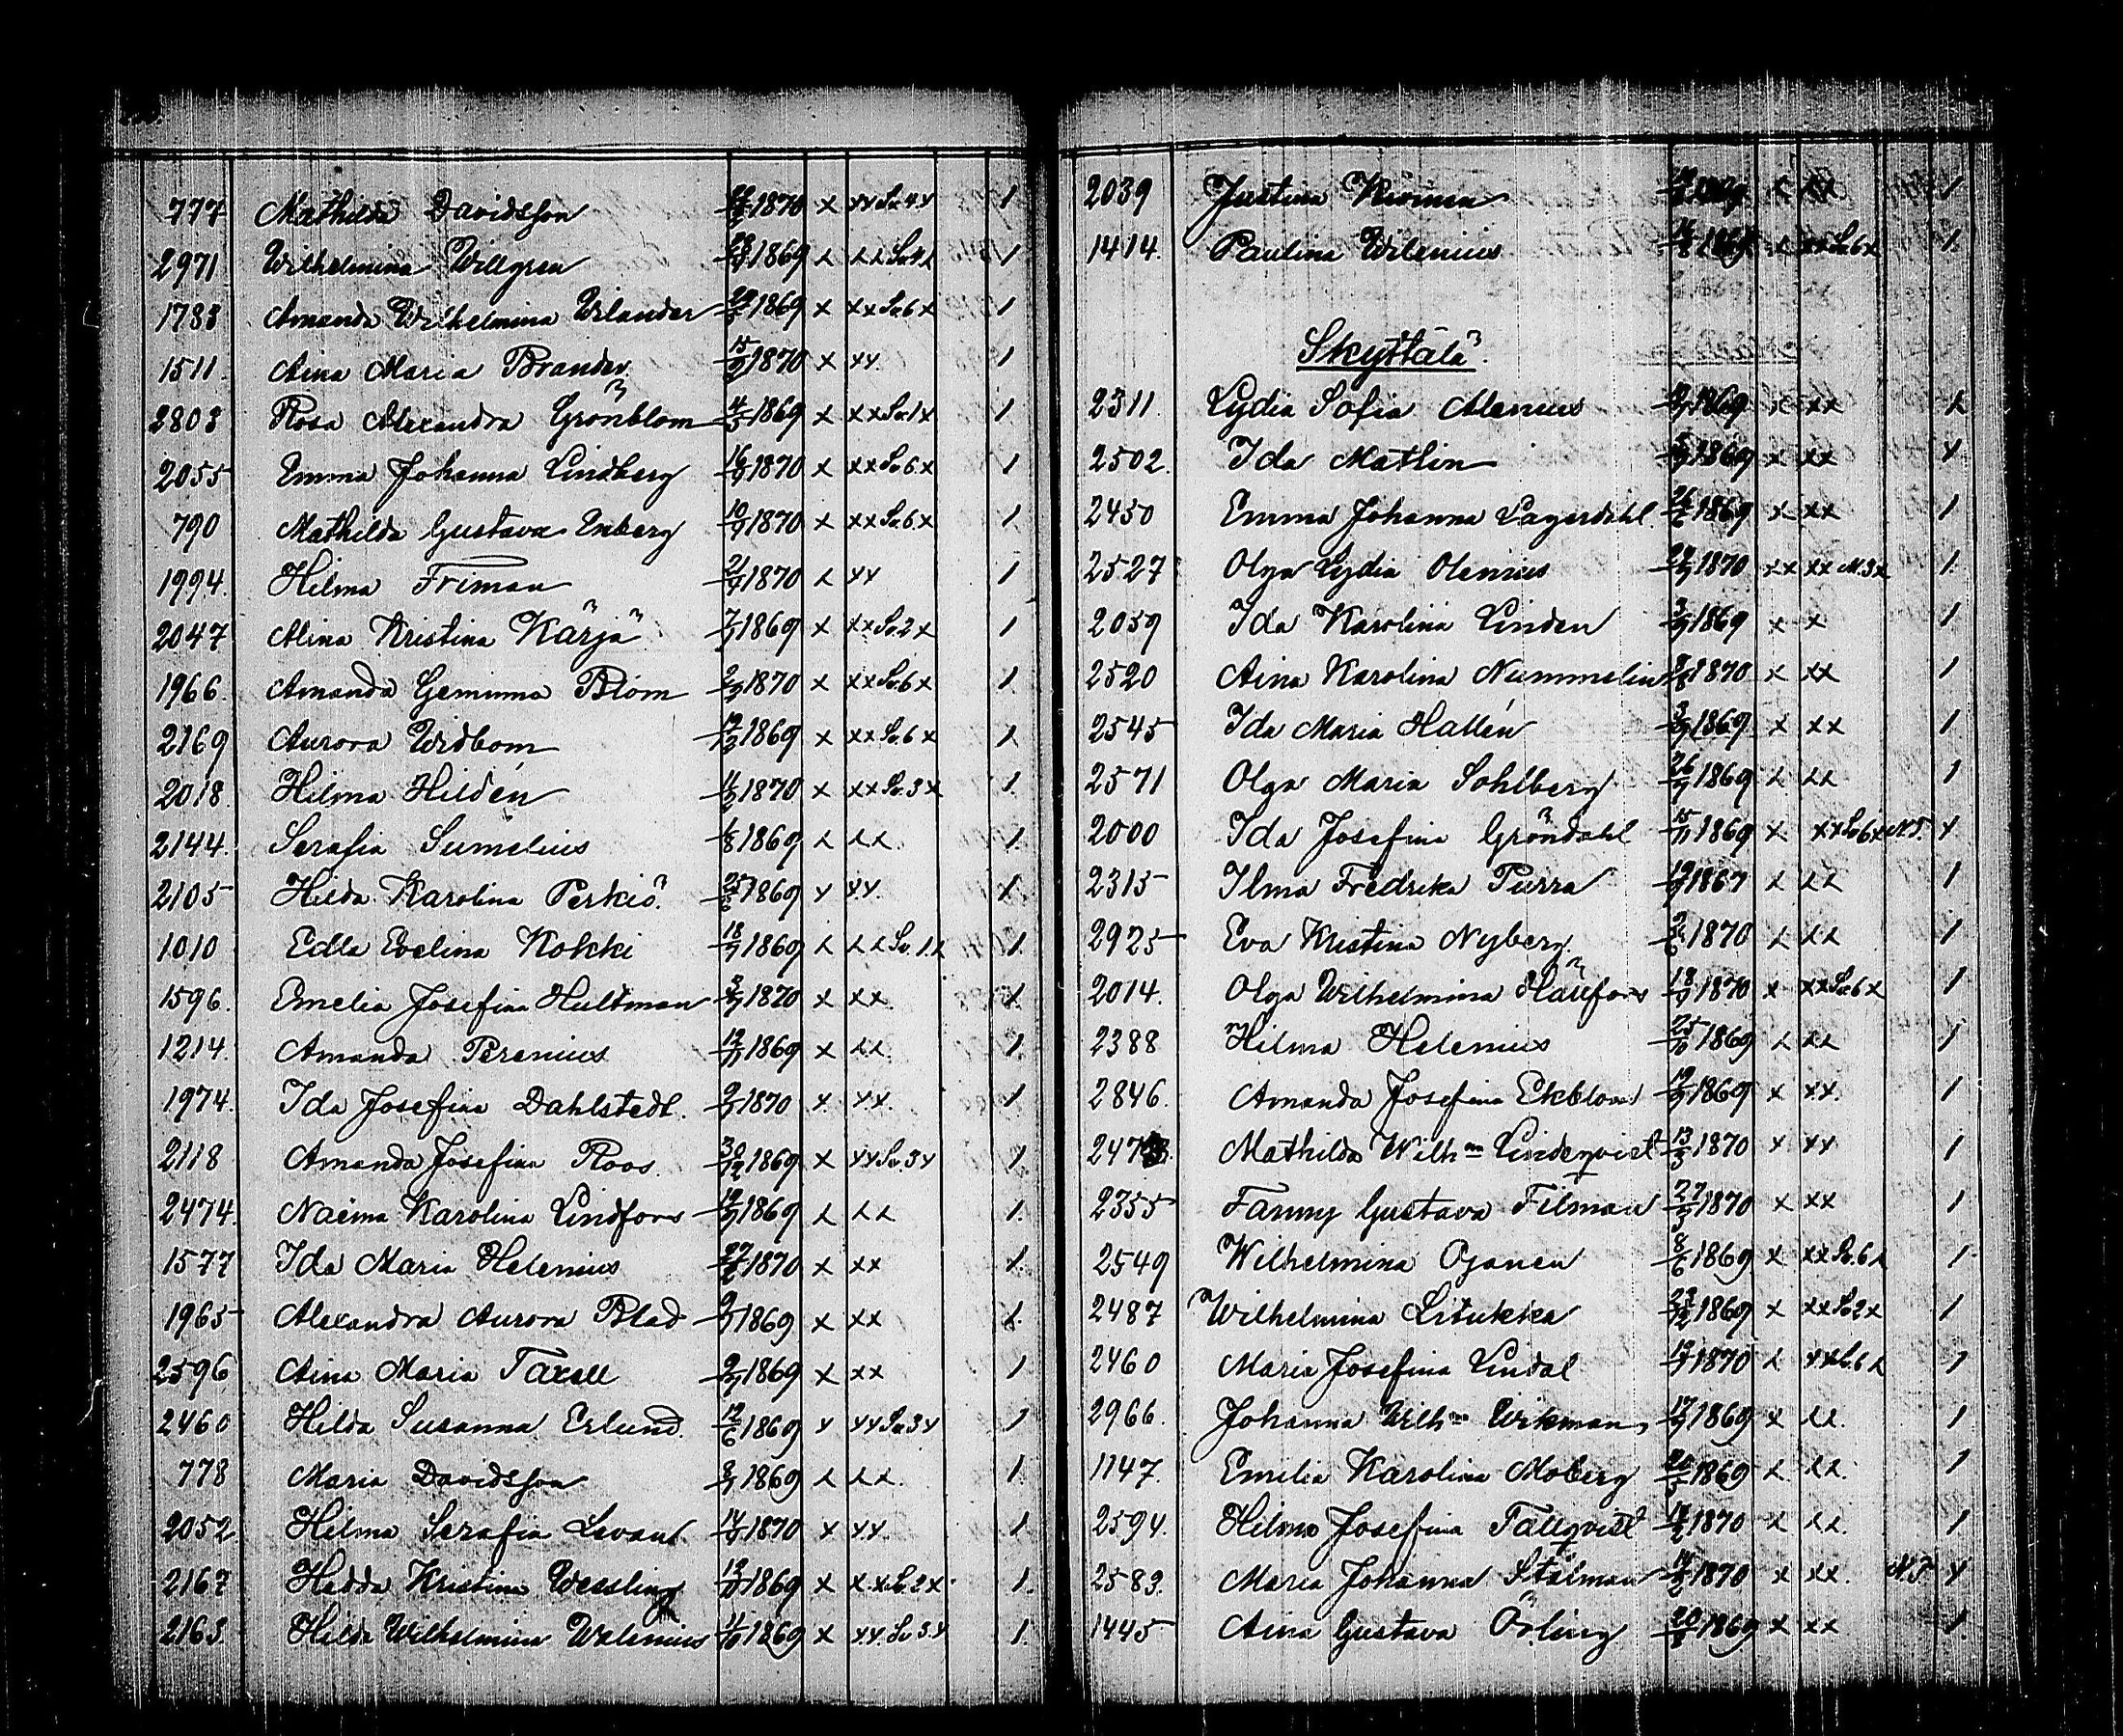 777 Mathilda Davidsson 1870 x xx Sv. 4 x 1
2971 Wilhelmina Willgren 1869 x xx Sv. 4 x 1
1783 Amanda Wilhelmina Wilander 1869 x xx Sv. 6 x 1
1511. Aina Maria Brander 15/9 1870 x xx. 1
2803 Rosa Alexandra Grönblom 4/5 1869 x xx Sv. 1 x 1
2055 Emma Johanna Lindberg 16/9 1870 x xx Sv. 6 x 1
790 Mathilda Gustava Enberg 10/9 1870 x xx Sv. 6 x 1
1994. Hilma Friman 1870 x xx 1
2047 Alina Kristina Kärjä 1869 x xx Sv. 2 x 1
1966. Amanda Gemima Blom 1870 x xx Sv. 6 x 1.
2169 Aurora Widbom 1869 x xx Sv. 6 x 1.
2018. Hilma Hildén 1870 x xx Sv. 3 x 1.
2144. Serafia Sumelius 1869 x xx. 1.
2105 Hilda Karolina Perkiö. 1869 x xx. 1.
1010 Edla Evelina Kokki 1869 x xx Sv. 1. x 1.
1596. Emelia Josefina Hultman 1870 x xx. 1.
1214. Amanda Perenius 1869 x xx. 1.
1974. Ida Josefina Dahlstedt. 1870 x xx. 1
2118 Amanda Josefina Roos. 30/12 1869 x xx Sv. 3 x 1
2474. Naëma Karolina Lindfors 1869 x xx 1.
1577 Ida Maria Helenius 1870 x xx 1.
1965 Alexandra Aurora Blad 1869 x xx 1.
2596 Aina Maria Taxell 1869 x xx 1
2460 Hilda Susanna Erlund. 12/6 1869 x xx Sv. 3 x 1
778 Maria Davidsson 1869 x xx. 1.
2052 Hilma Serafia Levant. 1870 x xx. 1
2167 Hedda Kristina Wessling 1869 x xx Sv. 2 x. 1.
2163. Hilda Wilhelmina Walenius 11/10 1869 x xx. Sv 3. x 1.
2039 Justina 1869 x xx 1
1414. Paulina Wilenius x xx Sv. 6 x 1.
Skyttälä.
2311. Lydia Sofia Alenius 1869 x xx 1
2502. Ida Matlin 1869 x xx x
2450 Emma Johanna Lagerdahl. 26/6 1869 x xx 1
2527 Olga Lydia Olenius 1870 xx xx N. 3 x 1.
2059 Ida Karolina Linden 1869 x x 1
2520 Aina Karolina Nummelin 1870 x xx 1
2545 Ida Maria Hallén 1869 x xx 1
2571 Olga Maria Sohlberg 1869 x xx 1
2000 Ida Josefina Gröndahl 15/11 1869 x xx Sv. 6 x N. 5. x
2315 Ilma Fredrika Purra 1867 x xx 1
2925 Eva Kristina Nyberg. 1870 x xx 1
2014. Olga Wilhelmina 1870 x xx Sv. 6 x 1
2388 Hilma Helenius 25/10 1869 x xx 1
2846. Amanda Josefina Ekblom 1869 x xx. 1
Mathilda Wilh:na Lindqvist 13/3 1870 x xx 1
2355 Fanny Gustava Filman 27/3 1870 x xx 1
2549 Wilhelmina Ojanen 8/6 1869 x xx Sv. 6 x 1.
2487 Wilhelmina Litukka 1869 x xx Sv 2 x 1
2460 Maria Josefina Lindal 1870 x xx Sv. 6 x 1
2966. Johanna Wilh:na Wikman 1869 x xx. 1
1147. Emilia Karolina Moberg 1869 x xx. 1
2594. Hilma Josefina Tallqvist 1870 x xx. 1
2583. Maria Johanna Stålman 1870 x xx. x
1445 Aina Gustava Örling 1869 x xx 1.